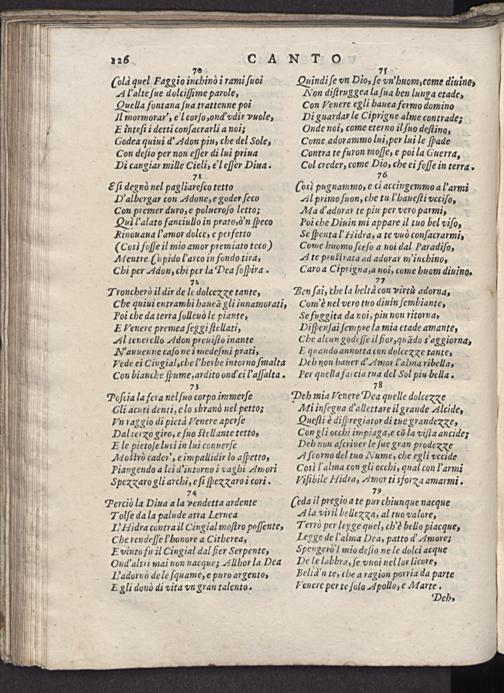 226
CANTO
70
Colà quel Faggio inchinò i rami suoi
A l'alte sue dolcissime parole,
Quella fontana sua trattenne poi
Il mormorar', e'l corso, ond'vdir vuole,
E intesi i detti consacrarli a noi;
Godea quiui d'Adon piu, che del Sole,
Con desio per non esser di lui priua
Di cangiar mille Cieli, e'l esser Diua.
71
Esi degnò nel pagliaresco tetto
D'albergar con Adone, e goder seco
Con premer duro, e polueroso letto;
Quì l'alato fanciullo in prato, ò'n speco
Rinouaua l'amor dolce, e perfetto
(Così fosse il mio amor premiato teco)
Mentre Cupido l'arco in fondo tira,
Chi per Adon, chi per la Dea sospira.
72
Troncherò il dir de le dolcezze tante,
Che quiui entrambi haueã gli innamorati,
Poi che da terra solleuò le piante,
E Venere premea seggi stellati,
Al tenerello Adon preuisto inante
N'auuenne caso ne i medesmi prati,
Vede ei Cingial, che l'herbe intorno smalta
Con bianche spume, ardito ond'ei l'assalta.
73
Poscia la fera nel suo corpo immerse
Gli acuti denti, e lo sbranò nel petto;
Vn raggio di pietà Venere aperse
Dal terzo giro, e suo stellante tetto,
E le pietose luci in lui conuerse
Mostrò cader', e impallidir lo aspetto,
Piangendo a lei d'intorno i vaghi Amori
Spezzaro gli archi, e si spezzaro i cori.
74
Perciò la Diua a la vendetta ardente
Tolse da la palude atra Lernea
L'Hidra contra il Cingial mostro possente,
Che rendesse l'honore a Citherea,
E vinto fu il Cingial dal fier Serpente,
Ond'altri mai non nacque; Allhor la Dea
L'adornò de le squame, e puro argento,
E gli donò di vita vn gran talento.
75
Quindi se vn Dio, se vn'huom, come diuino,
Non distruggea la sua ben lunga etade,
Con Venere egli hauea fermo domino
Di guardar le Ciprigne alme contrade;
Onde noi, come eterno il suo destino,
Come adorammo lui, per lui le spade
Contra te furon mosse, e poi la Guerra,
Col creder, come Dio, che ei fosse in terra.
76
Così pugnammo, e ci accingemmo a l'armi
Al primo suon, che tu l'hauesti vcciso,
Ma d'adorar te piu per vero parmi,
Poi che Diuin mi appare il tuo bel viso,
Se spenta l'Hidra, a te vuò consacrarmi,
Come huomo sceso a noi dal Paradiso,
A te prostrata ad adorar m'inchino,
Caro a Ciprigna, a noi, come huom diuino.
77
Ben sai, che la beltà con virtù adorna,
Com'è nel vero tuo diuin sembiante,
Se fuggita da noi, piu non ritorna,
Dispensai sempre la mia etade amante,
Che alcun godesse il fior, quãdo s'aggiorna,
E quando annotta con dolcezze tante,
Deh non hauer d'Amor l'alma ribella,
Per quella faccia tua del Sol piu bella.
78
Deh mia Venere Dea quelle dolcezze
Mi insegna d'allettare il grande Alcide,
Questi è dispregiator di tue grandezze,
Con gli occhi impiaga, e cõ la vista ancide;
Deh non ascriuer le sue gran prodezze
A scorno del tuo Nume, che egli vccide
Così l'alma con gli occhi, qual con l'armi
Visibile Hidra, Amor ti sforza amarmi.
79
Ceda il pregio a te pur chiunque nacque
A la viril bellezza, al tuo valore,
Terrò per legge quel, ch'è bello piacque,
Legge de l'alma Dea, patto d'Amore;
Spengerò'l mio desio ne le dolci acque
De le labbra, se vuoi nel lor licore,
Beltà'n te, che a ragion porria da parte
Venere per te solo Apollo, e Marte.
Deh,